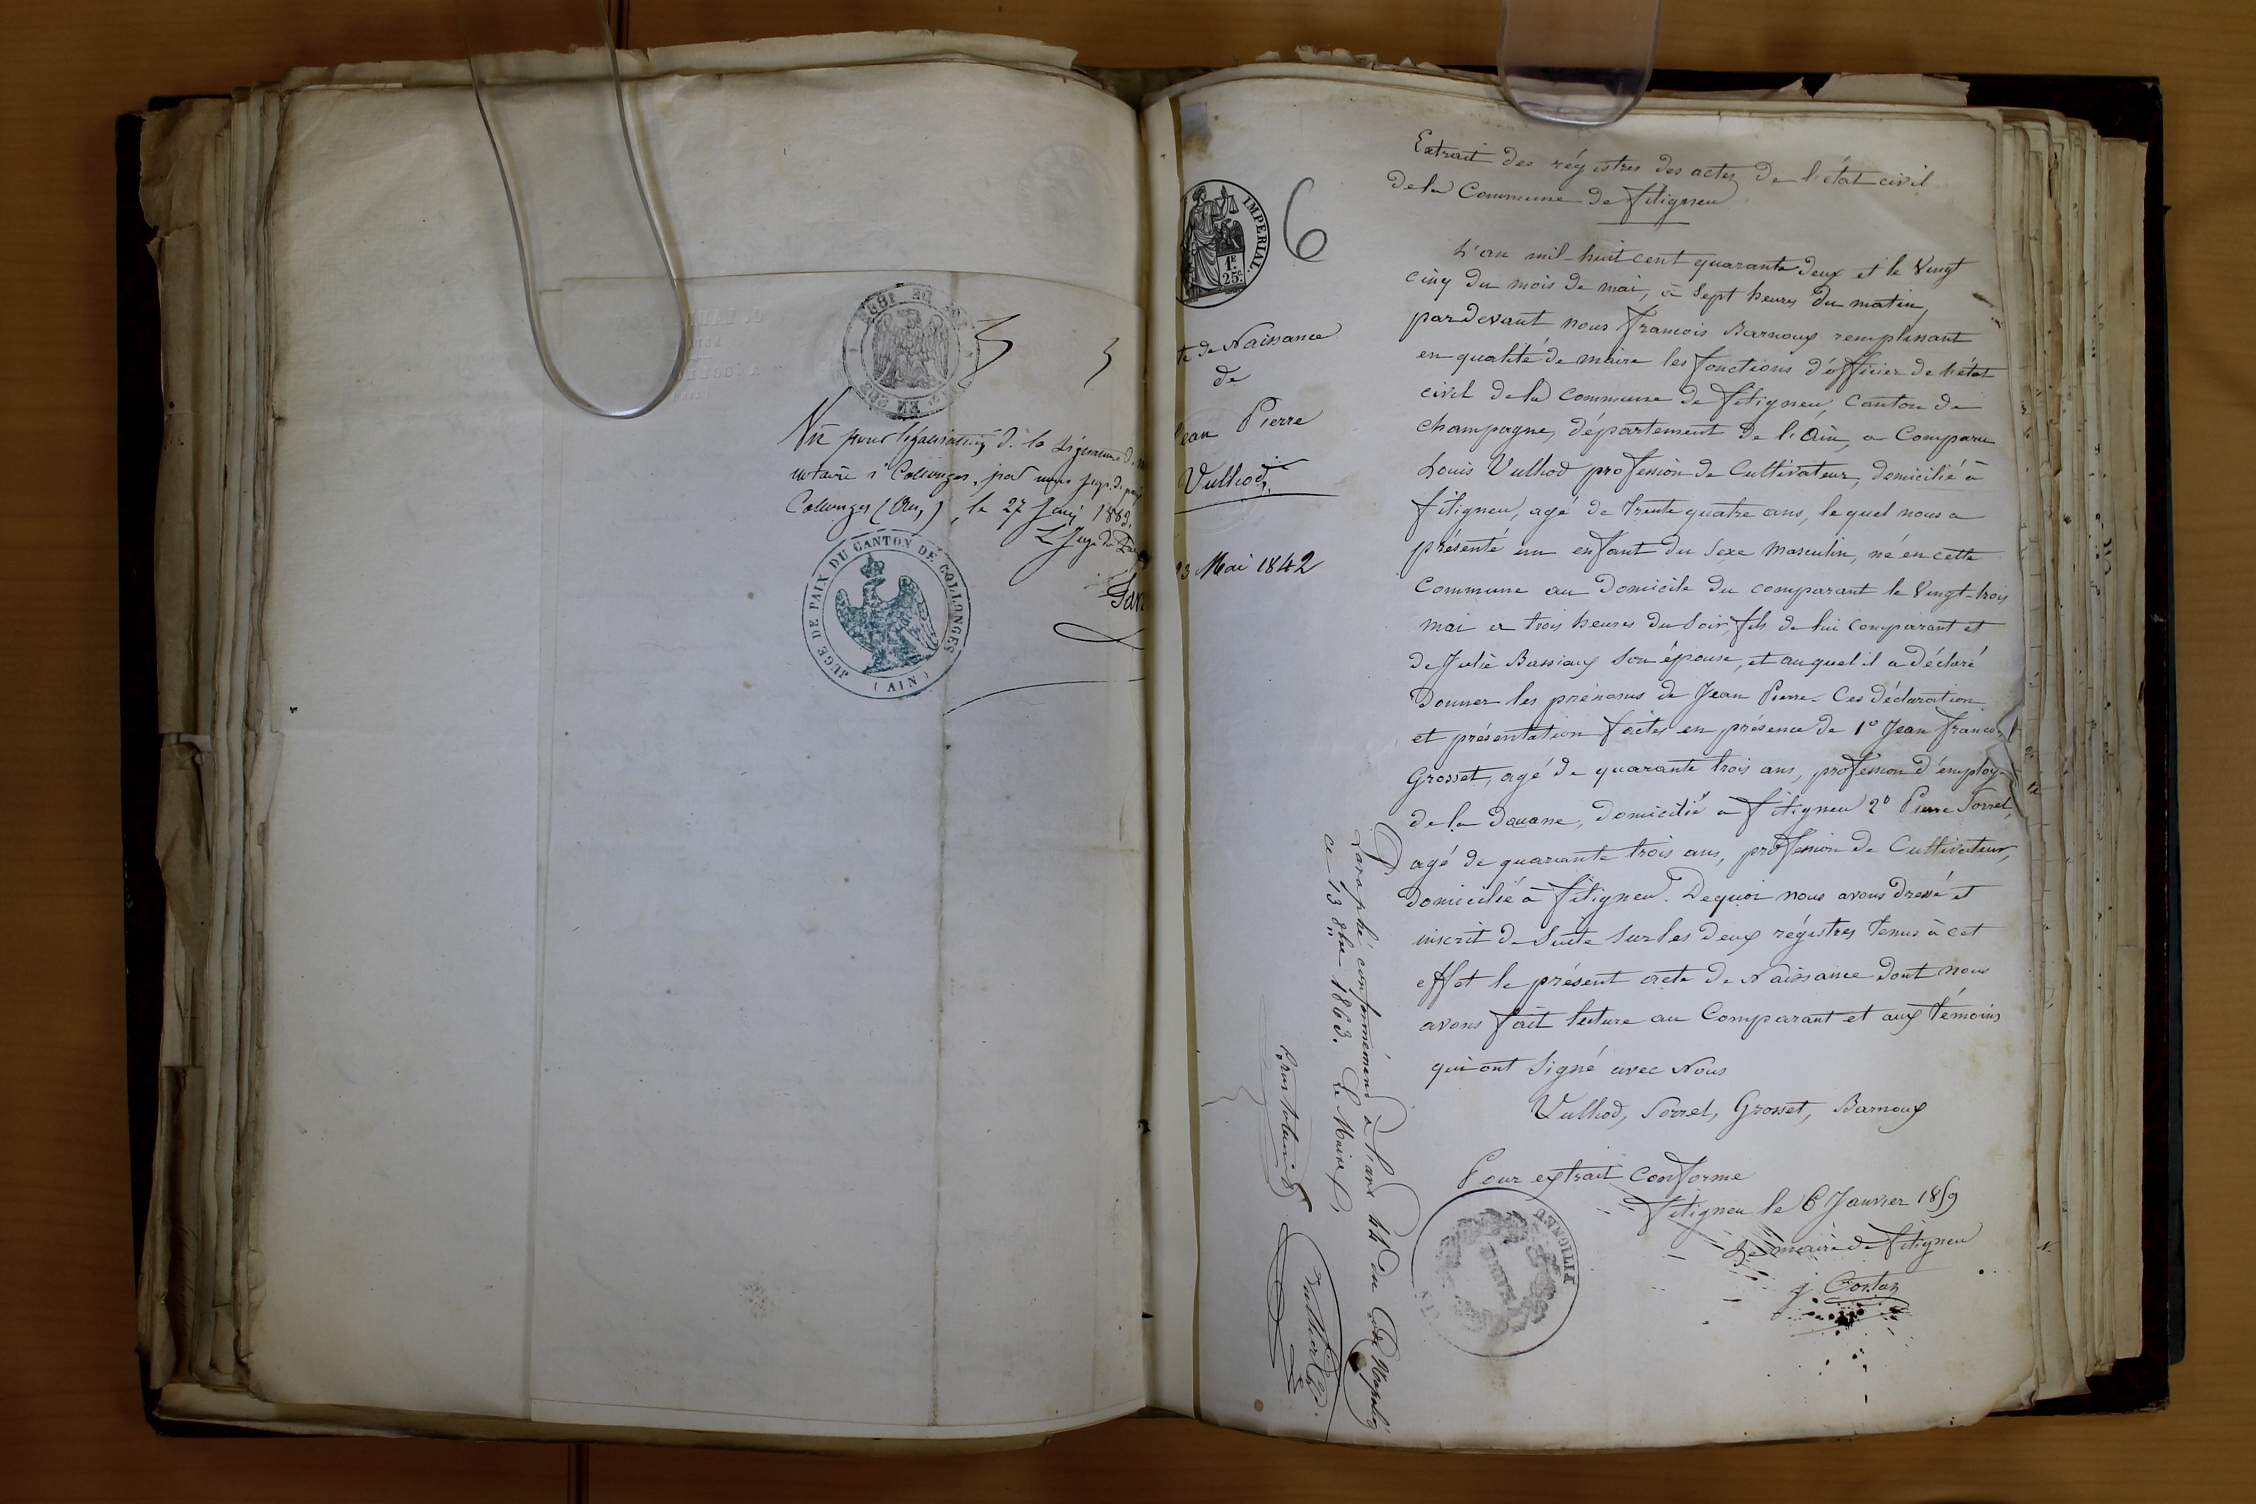 Vu pour légalisation de la signature de
notaire à Collonges, par nous juge de paix
Collonges (Ain), le 27 Juin 1863.
Le Juge de Paix
JUGE DE PAIX DU CANTON DE COLLONGES
(AIN)
IMPERIAL.
1F
25c.
6
te de Naissance
de
Jean Pierre
Vulliod
23 Mai 1842
Extrait des régistres des actes de l'état civil
de la Commune de fitigneu
L'an mil-huit cent quarante deux et le Vingt
cinq du mois de mai, à Sept heures du matin,
pardevant nous francois Barnoux remplissant
en qualité de maire les fonctions d'officier de l'état
civil de la Commune de fitigneu, Canton de
champagne, département de l'Ain, a Comparu
Louis Vulliod profession de Cultivateur, domicilié à
fitigneu, agé de trente quatre ans, lequel nous a
présenté un enfant du Sexe Masculin, né en cette
Commune au Domicile du comparant le Vingt-trois
mai a trois heures du Soir, fils de lui comparant et
de Julie Bassiaux Son épouse, et auquel il a déclaré
Donner les prénoms de Jean Pierre. Ces déclaration
et présentation faites en présence de 1o Jean francois
Grosset, agé de quarante trois ans, profession d'employé
de la Douane, domicilié a fitigneu 2o Pierre Sorrel,
agé de quarante trois ans, profession de Cultivateur,
domicilié à fitigneu. Dequoi nous avons dressé et
inscrit de Suite Sur les deux régistres tenus à cet
effet le présent acte de Naissance dont nous
avons fait lecture au Comparant et aux témoins
qui ont Signé avec Nous
Vulliod, Sorrel, Grosset, Barnoux
Pour extrait conforme
fitigneu le 6 Janvier 1859
Le maire de fitigneu
J Costaz
FITIGNEU
Paraphé conformément à l'art 44 du Code Napoléon
ce 13 8bre 1863. Le Maire,